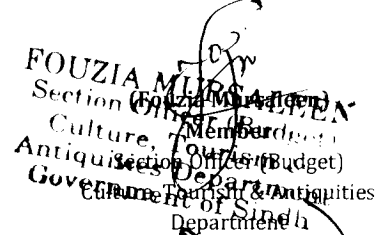 FOUZIA MURSALEEN
Section Officer (Budget)
Culture, Tourism &
Antiquities Department
Government of Sindh
(Fouzia Mursaleen)
Member
Section Officer (Budget)
Culture, Tourism & Antiquities
Department